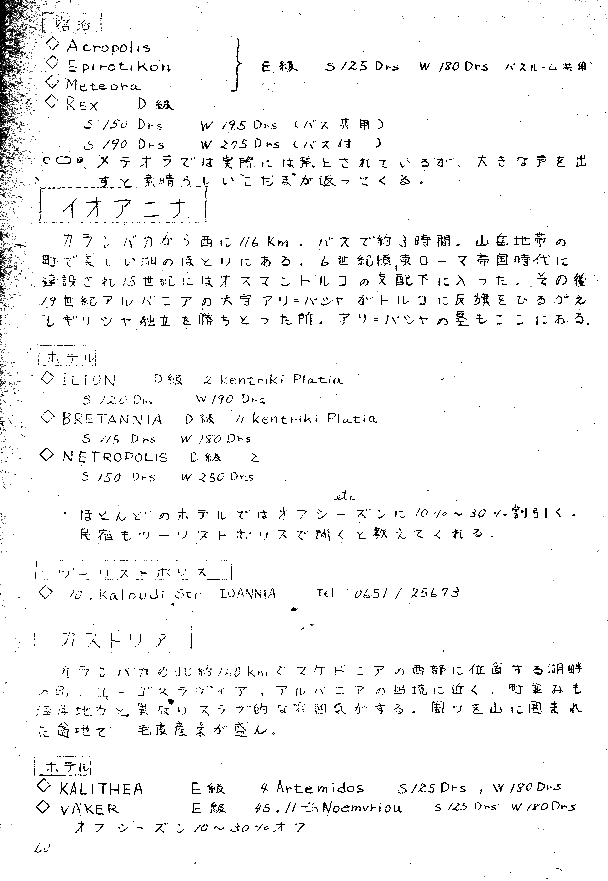 宿泊
◇ Acropolis
◇ Epirotikon E級 S 125 Drs W 180 Drs バスルーム共用
◇ Meteora
◇ REX D級
S 150 Drs W 195 Drs (バス共用)
S 190 Drs W 275 Drs (バス付)
メテオラでは実際には禁止されているが、大きな声を出
すと素晴らしいこだまが返ってくる。
イオアニナ
カランバカから西に116Km、バスで約3時間。山岳地帯の
町で美しい湖のほとりにある。6世紀頃、東ローマ帝国時代に
建設され15世紀にはオスマントルコの支配下に入った。その後
19世紀アルバニアの大守アリ=パシャがトルコに反旗をひるがえ
しギリシャ独立を勝ちとった所。アリ=パシャの墓もここにある。
ホテル
◇ ILION D級 2 Kentriki Platia
S 120 Drs W 190 Drs
◇ BRETANNIA D級 11 Kentriki Platia
S 115 Drs W 180 Drs
◇ NETROPOLIS D級 2
S 150 Drs W 230 Drs
etc
ほとんどのホテルではオフシーズンに10%〜30%割引く。
民宿もツーリストポリスで聞くと教えてくれる。
ツーリストポリス
◇ 10. Kaloudi Str IOANNIA Tel 0651/25673
カストリア
カランバカの北約 Kmでマケドニアの西部に位置する湖畔
の町。ユーゴスラヴィア、アルバニアの国境に近く、町並みも
地方と異なりスラブ的な雰囲気がする。周りを山に囲まれ
た盆地で 毛皮産業が盛ん。
ホテル
◇ KALITHEA E級 4 Artemidos S 125 Drs, W 180 Drs
◇ VAKER E級 45. 11 th Noemvriou S 125 Drs W 180 Drs
オフシーズン 10〜30%オフ
60